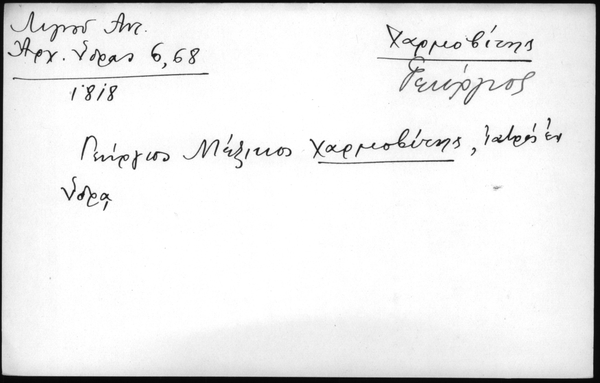 Λιγνού Αντ.
Αρχ. Ύδρας 6, 68
1818
Χαρμοβίτης
Γεώργιος
Γεώργιος Μέξικος Χαρμοβίτης, ἰατρός ἐν
Ύδρᾳ